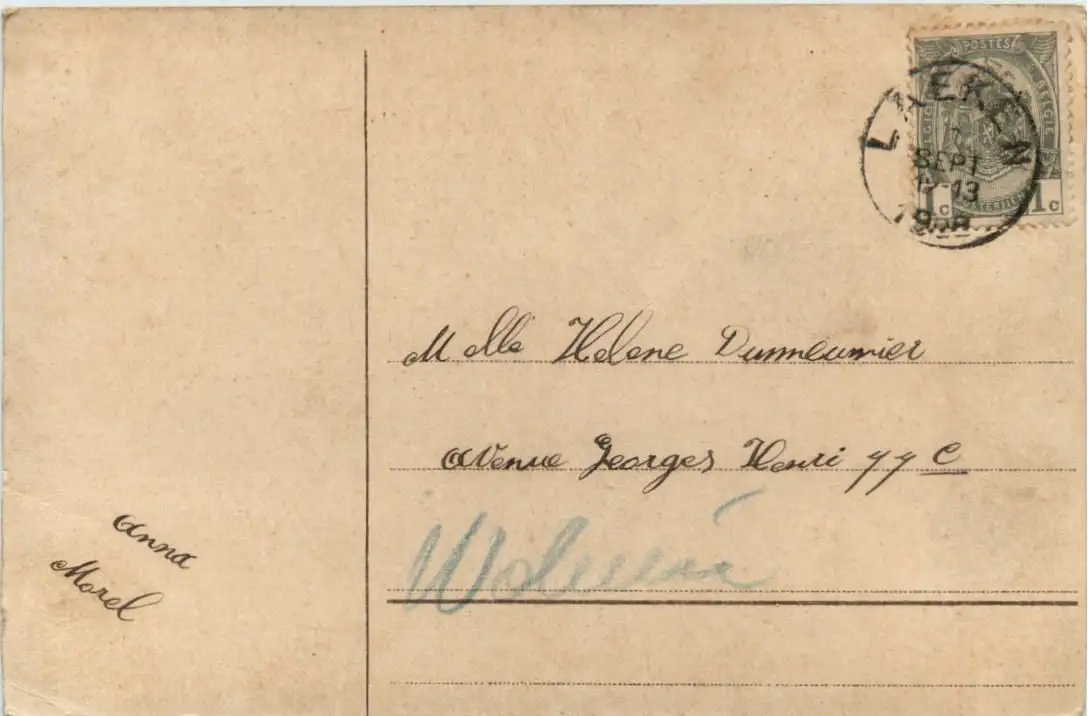 POSTES
BELGIE
1c 1c
LAEKEN
SEPT
12-13
M elle Helene Dumeunier
Avenue Georges Henri 77 C
Anna
Morel